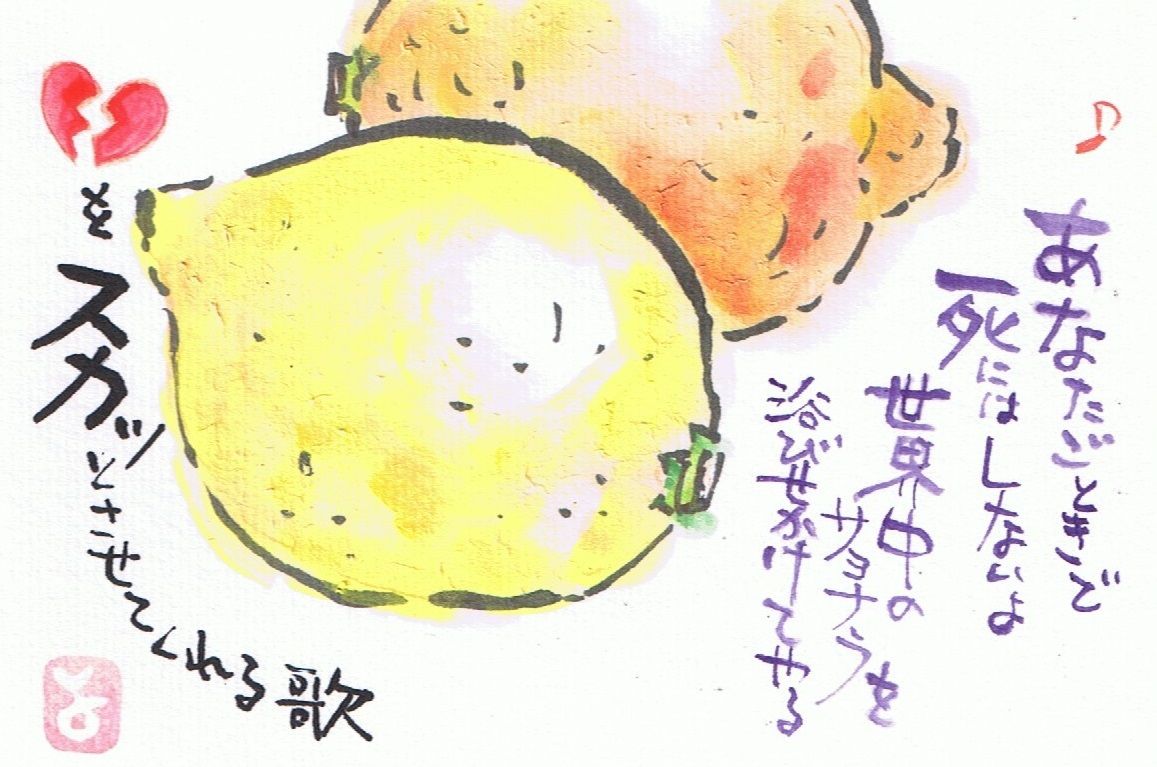 あなたごときで
死にはしないよ
世界中の
サヨナラを
浴びせかけてやる
💔をスカッとさせてくれる歌